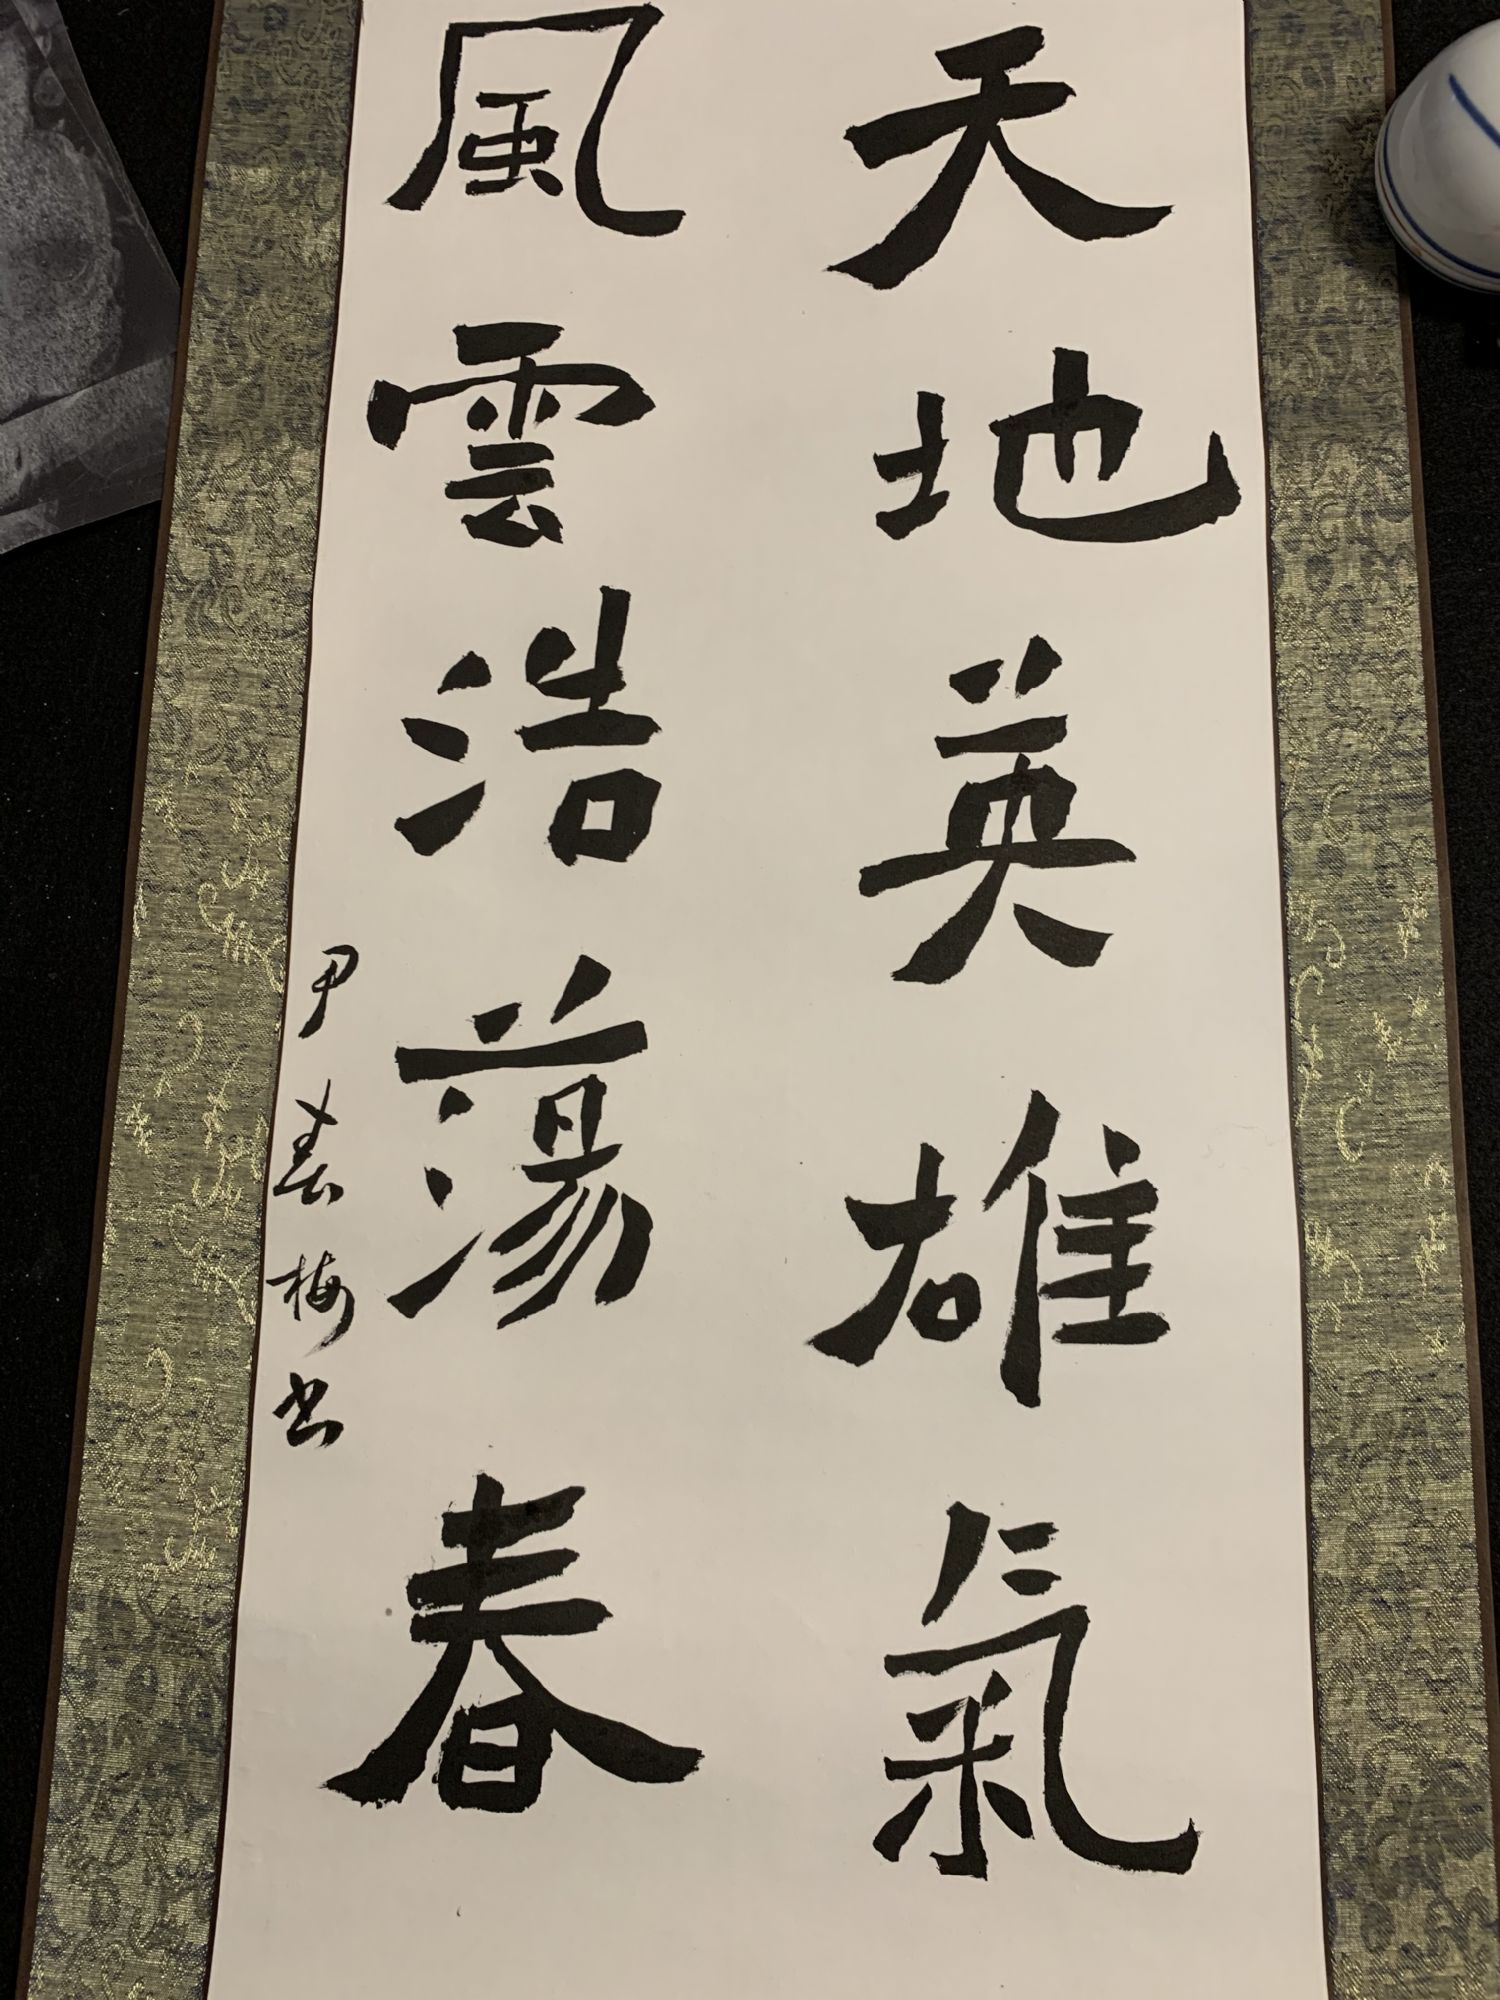 天地英雄氣
風雲浩蕩春
尹春梅书